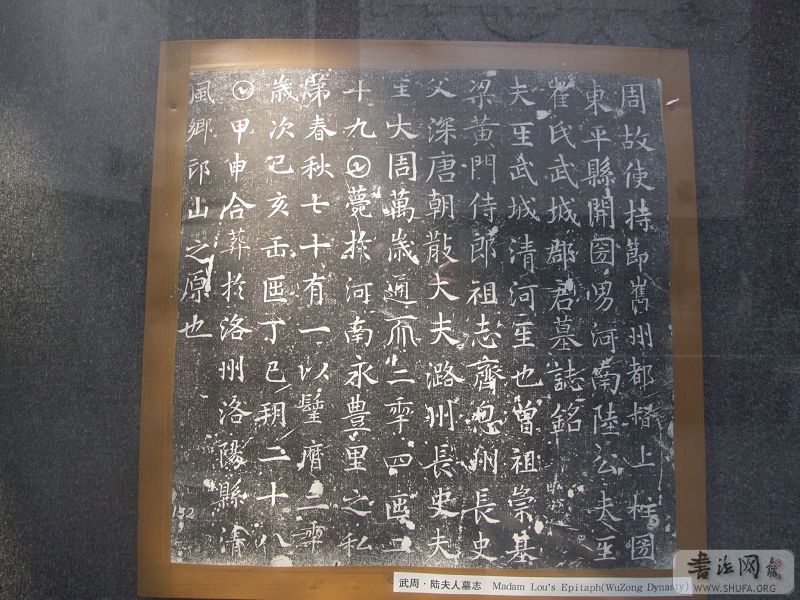 周故使持節巂州都督上柱圀
東平縣開圀男河南陸公夫𤯔
崔氏武城郡君墓誌銘
夫𤯔武城清河𤯔也曾祖崇基
梁黃門侍郎祖志齊州長史
父深唐朝散大夫潞州長史夫
𤯔大周萬歲通𠀑二𠡦四𠥱二
十九𡆠薨於河南永豊里之私
第春秋七十有一以𨲢曆二𠡦
歲次己亥𠙺𠥱丁巳朔二十八
𡆠甲申合葬於洛州洛陽縣清
風鄉邙山之原也
152
武周·陆夫人墓志 Madam Lou's Epitaph(WuZong Dynasty)
书法网
WWW.SHUFA.ORG